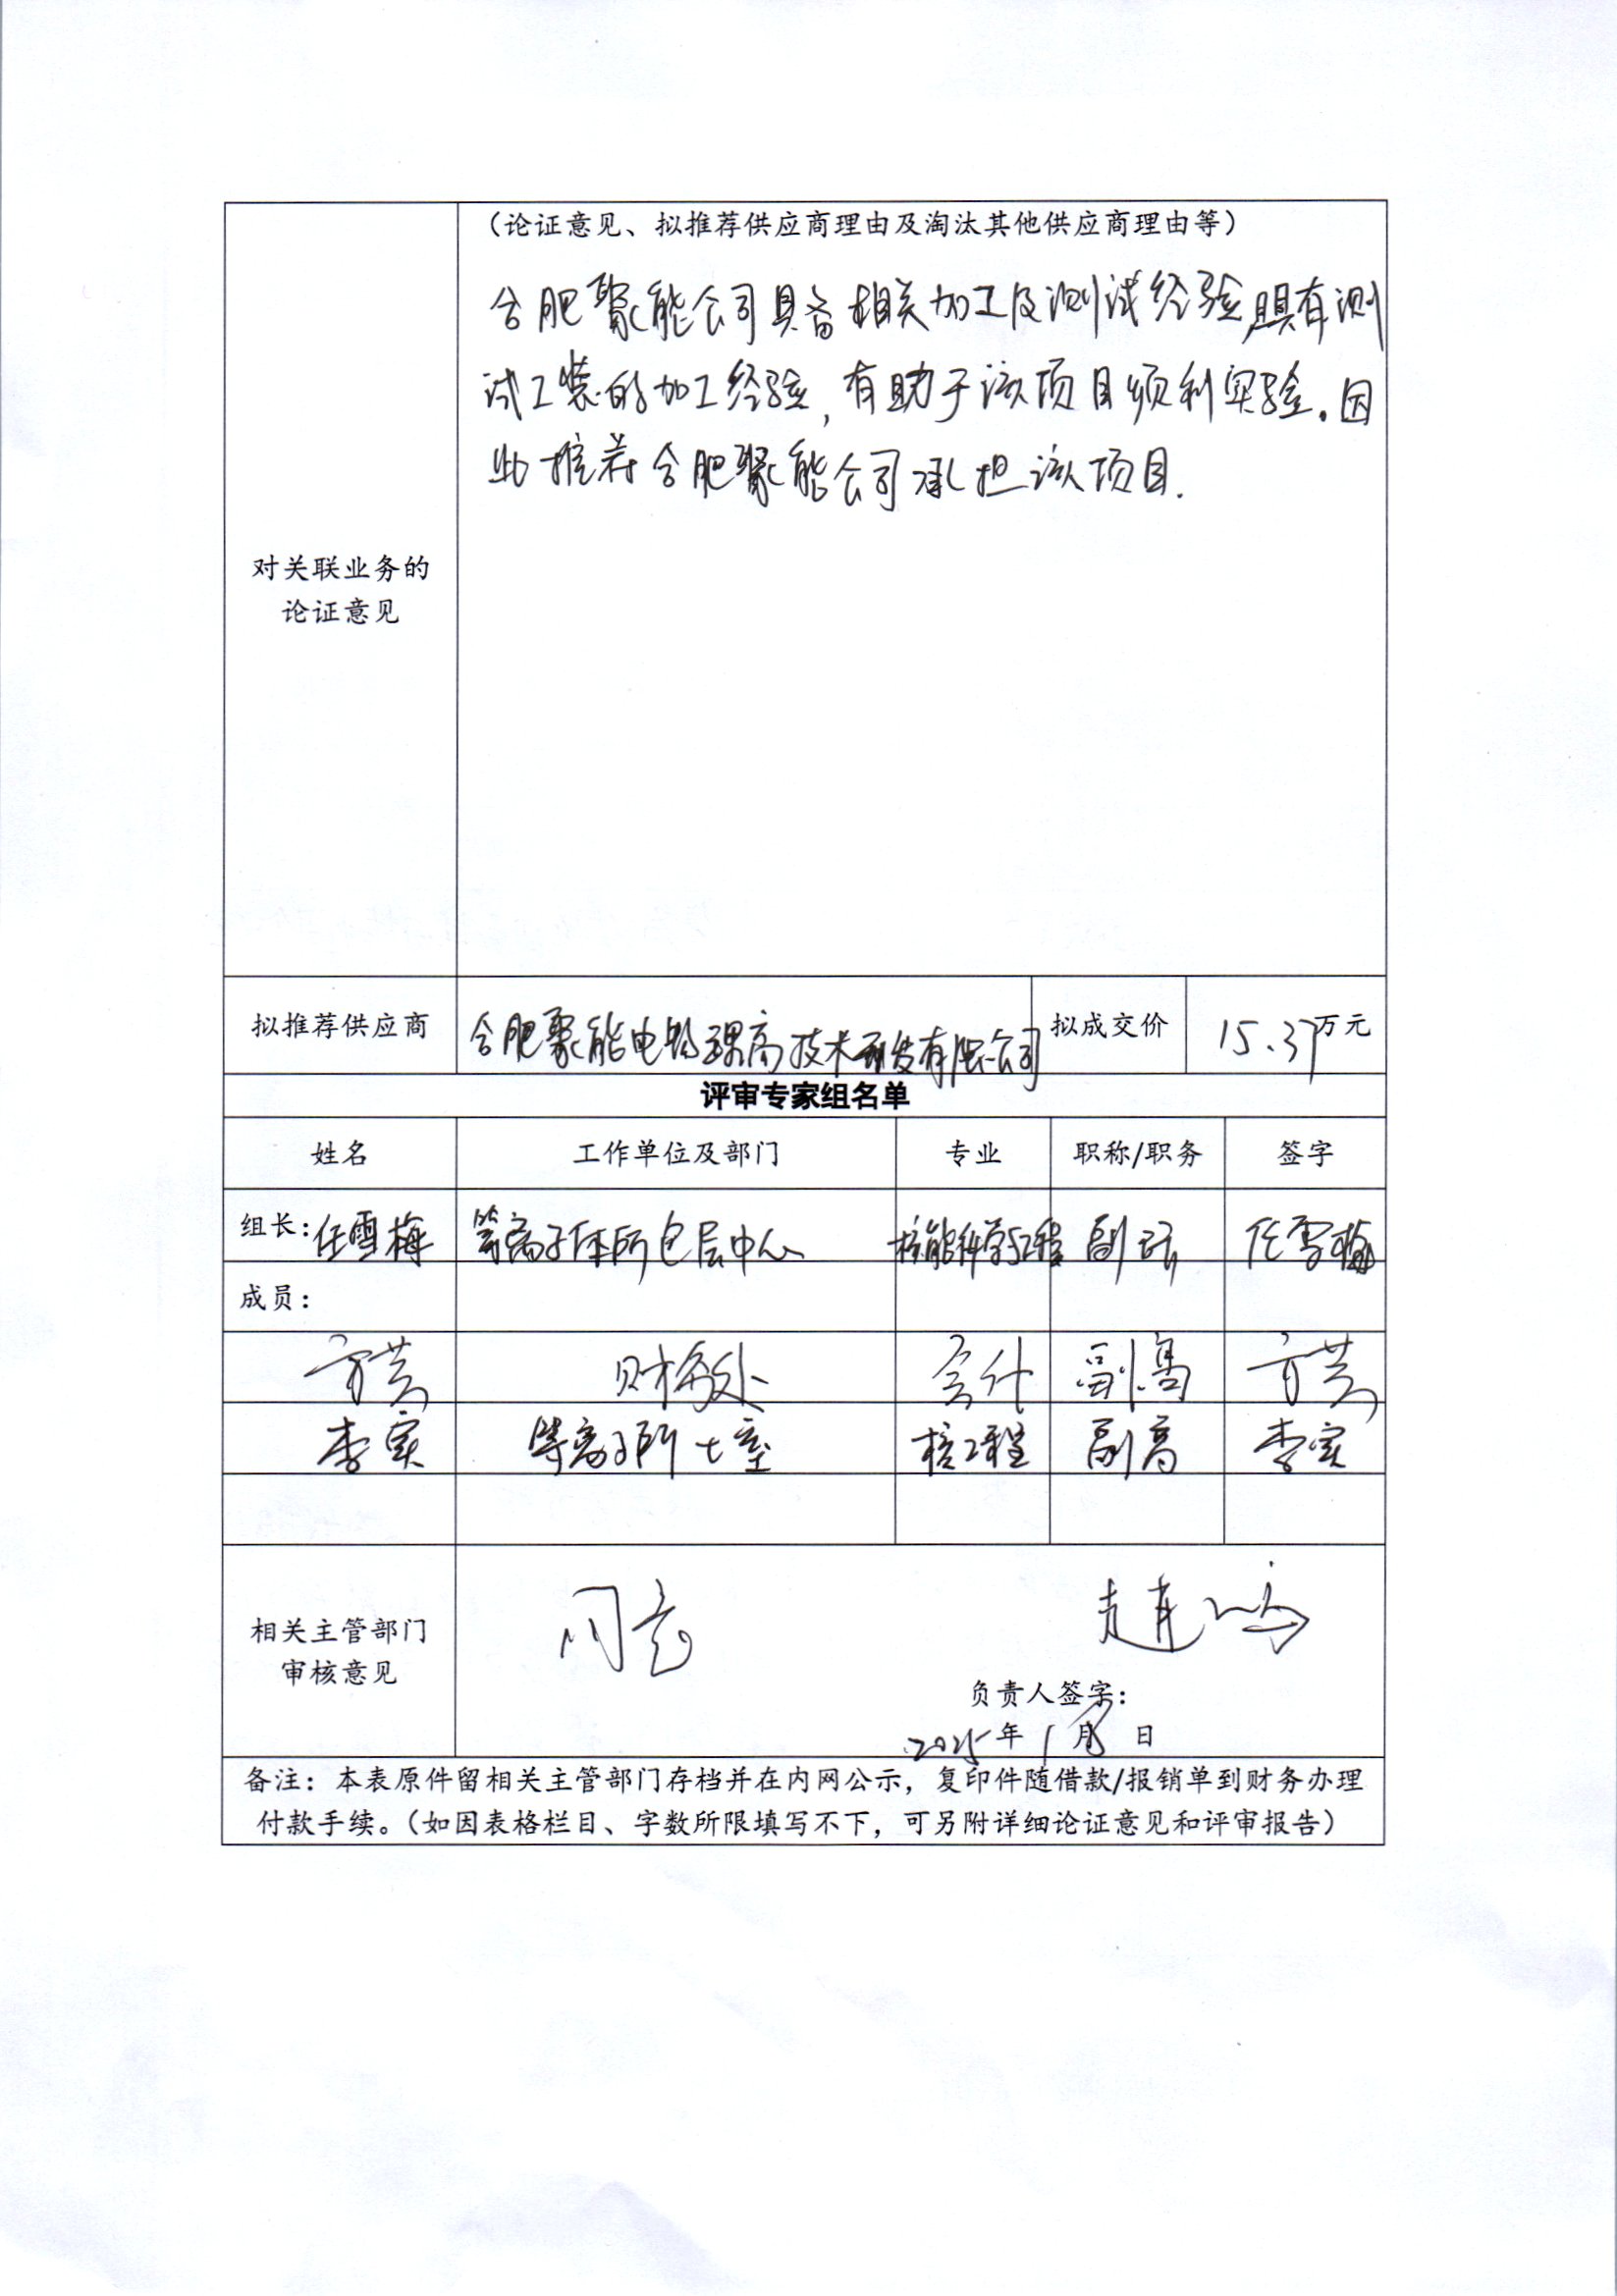 （论证意见、拟推荐供应商理由及淘汰其他供应商理由等）
合肥聚能公司具备相关加工及测试经验,具有测
试工装的加工经验,有助于该项目顺利实验。因
此推荐合肥聚能公司承担该项目.
对关联业务的
论证意见
拟推荐供应商 合肥聚能电物理高技术开发有限公司 拟成交价 15.37万元
评审专家组名单
姓名 工作单位及部门 专业 职称/职务 签字
组长:任雪梅 等离子体所包层中心 核能科学工程 副研 任雪梅
成员:
财务处 会计 副高
李实 等离子所七室 核工程 副高 李实
相关主管部门
审核意见
同意
负责人签字:
2025年1月 日
备注：本表原件留相关主管部门存档并在内网公示，复印件随借款/报销单到财务办理
付款手续。（如因表格栏目、字数所限填写不下，可另附详细论证意见和评审报告）